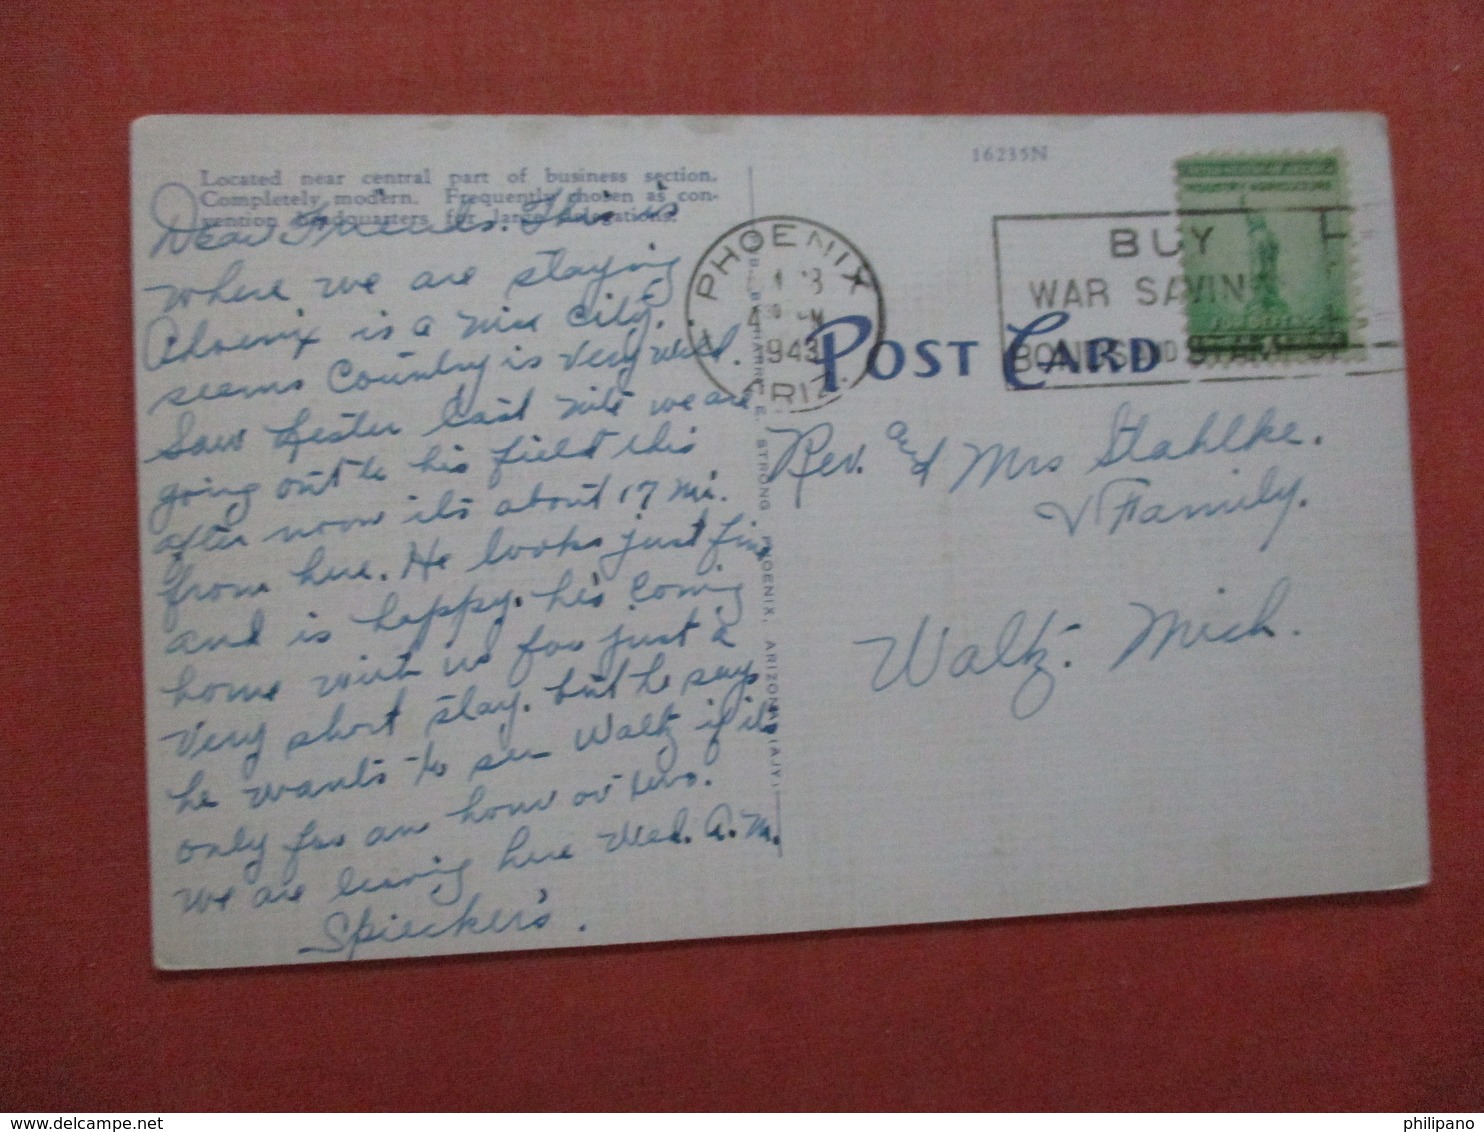 Located near central part of business section.
Completely modern. Frequently chosen as con-
vention headquarters for large delegations.
Dear Friends. This is
where we are staying
Phoenix is a nice city.
seems Country is very wild.
Saw Lester last nite we are
going out to his field this
after noon it's about 17 mi.
from here. He looks just fine
and is happy. he's coming
home with us for just a
very short stay. but he says
he wants to see Waltz if its
only for an hour or two.
We are leaving here Wed. A.M.
Spieckers.
16235N
PHOENIX
4 30 PM
1943
ARIZ.
BUY
WAR SAVINGS
BONDS AND STAMPS
INDUSTRY AGRICULTURE
FOR DEFENSE
POST CARD
STRONG PHOENIX, ARIZONA (AJY)
Rev. and Mrs Stahlke.
& Family.
Waltz. Mich.
philipano